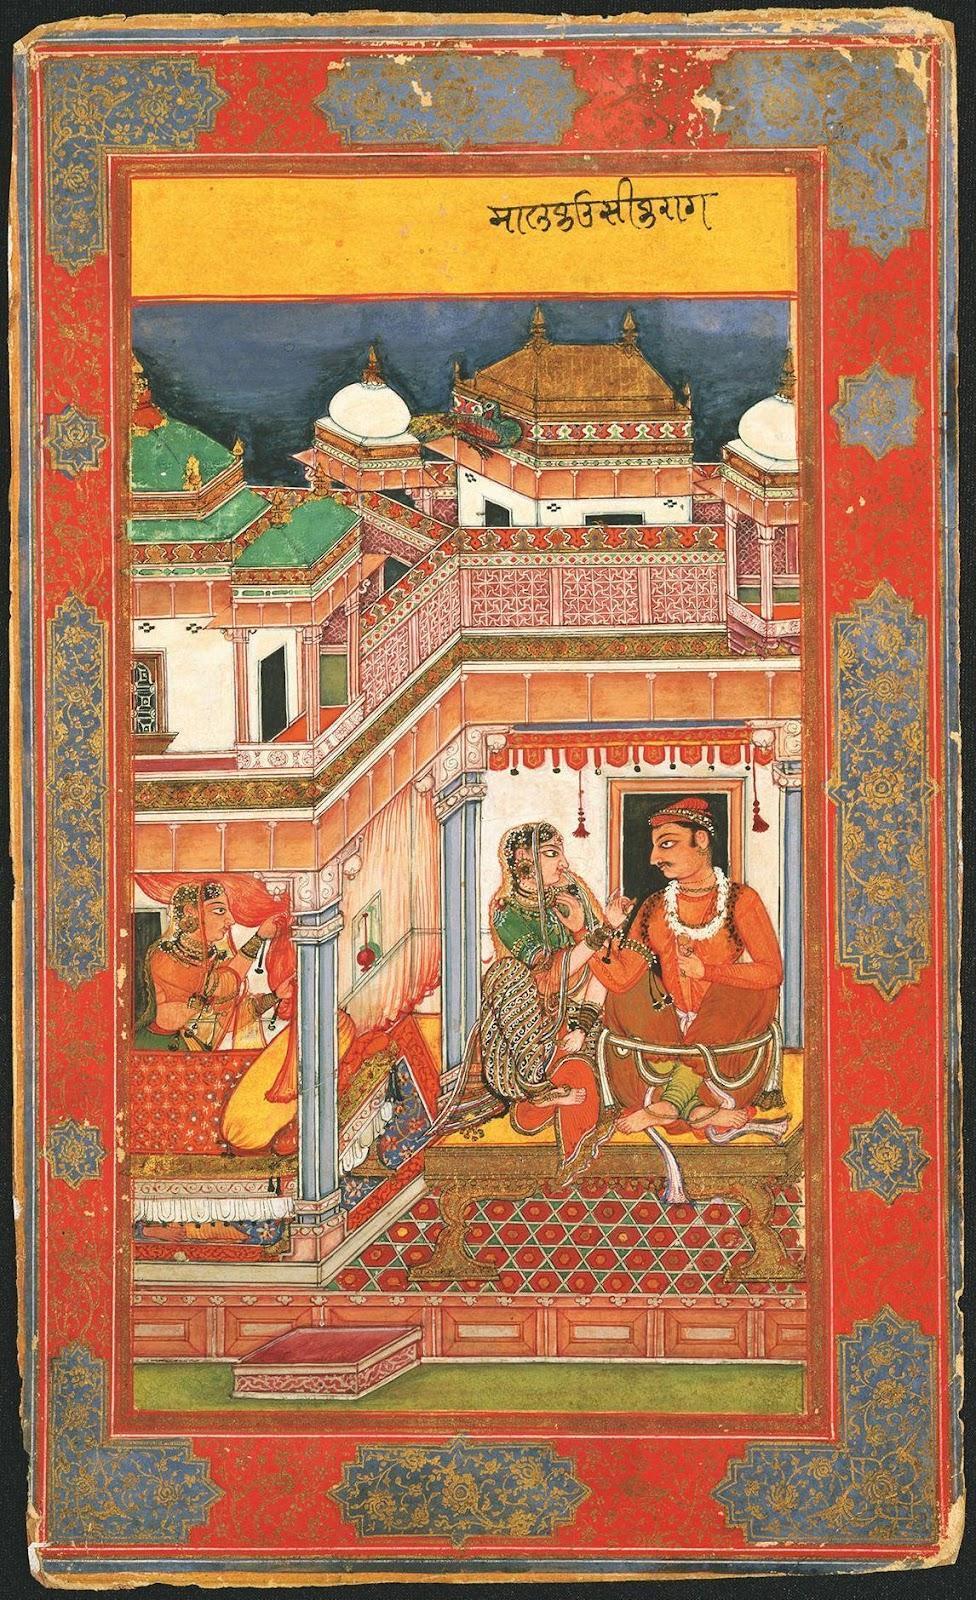 मालकउसीकराग